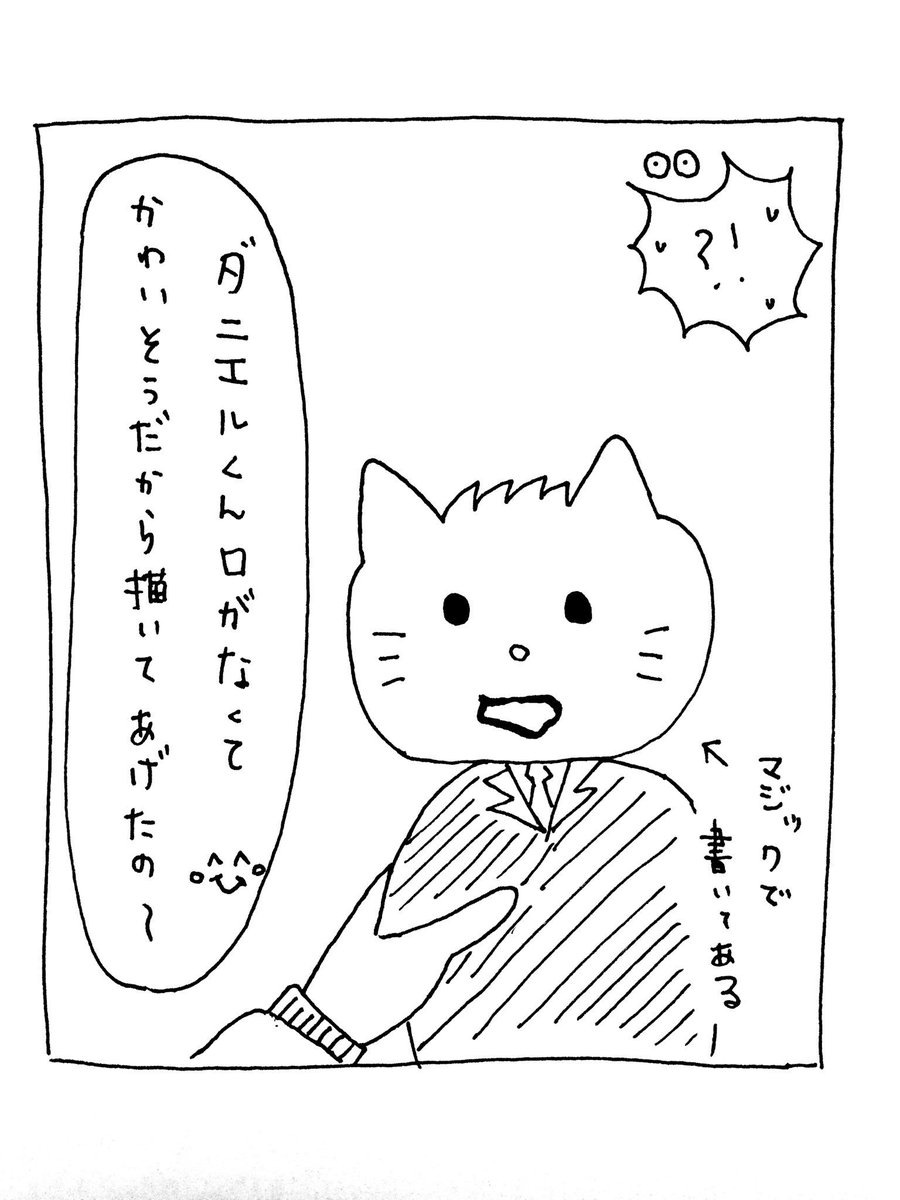 ?!
ダニエルくん口がなくて
かわいそうだから描いてあげたの〜
マジックで
書いてある